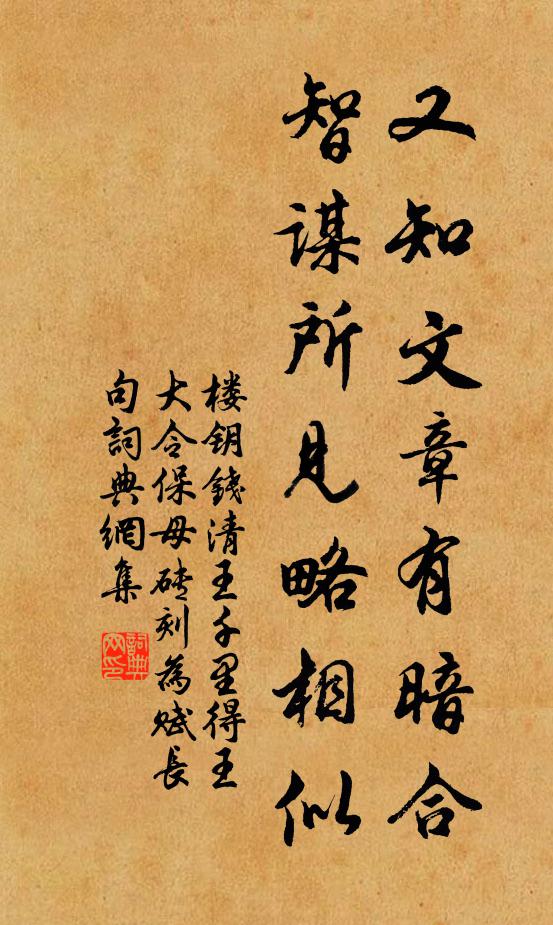 又知文章有暗合
智谋所见略相似
楼钥錢清王千里得王
大令保母砖刻為赋長
句詞典網集
詞典
网印